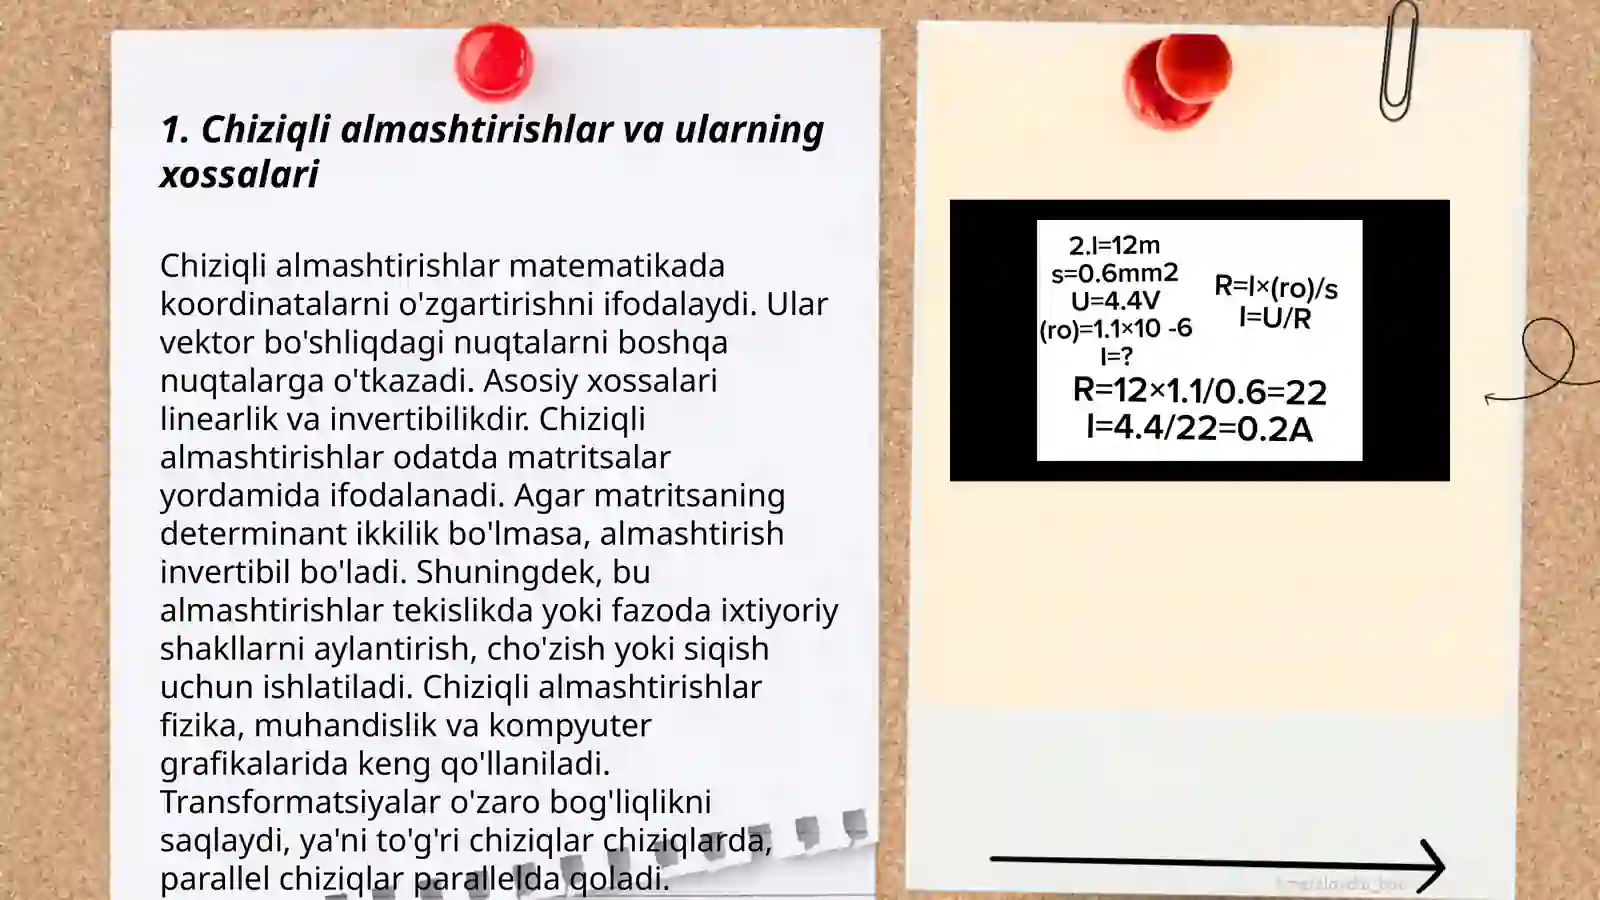 1. Chiziqli almashtirishlar va ularning
xossalari
Chiziqli almashtirishlar matematikada
koordinatalarni o'zgartirishni ifodalaydi. Ular
vektor bo'shliqdagi nuqtalarni boshqa
nuqtalarga o'tkazadi. Asosiy xossalari
linearlik va invertibilikdir. Chiziqli
almashtirishlar odatda matritsalar
yordamida ifodalanadi. Agar matritsaning
determinant ikkilik bo'lmasa, almashtirish
invertibil bo'ladi. Shuningdek, bu
almashtirishlar tekislikda yoki fazoda ixtiyoriy
shakllarni aylantirish, cho'zish yoki siqish
uchun ishlatiladi. Chiziqli almashtirishlar
fizika, muhandislik va kompyuter
grafikalarida keng qo'llaniladi.
Transformatsiyalar o'zaro bog'liqlikni
saqlaydi, ya'ni to'g'ri chiziqlar chiziqlarda,
parallel chiziqlar parallelda qoladi.
2.l=12m
s=0.6mm2
U=4.4V
(ro)=1.1×10 -6
I=?
R=l×(ro)/s
I=U/R
R=12×1.1/0.6=22
I=4.4/22=0.2A